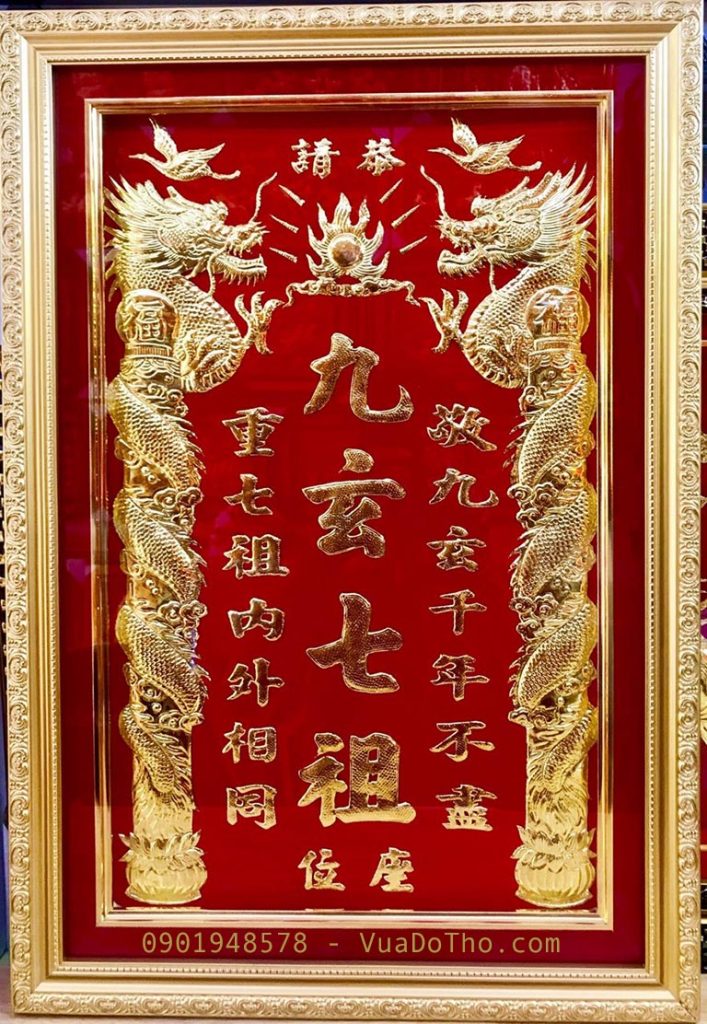 恭請
福
福
敬九玄千年不盡
九玄七祖
重七祖內外相同
座位
0901948578 - VuaDoTho.com